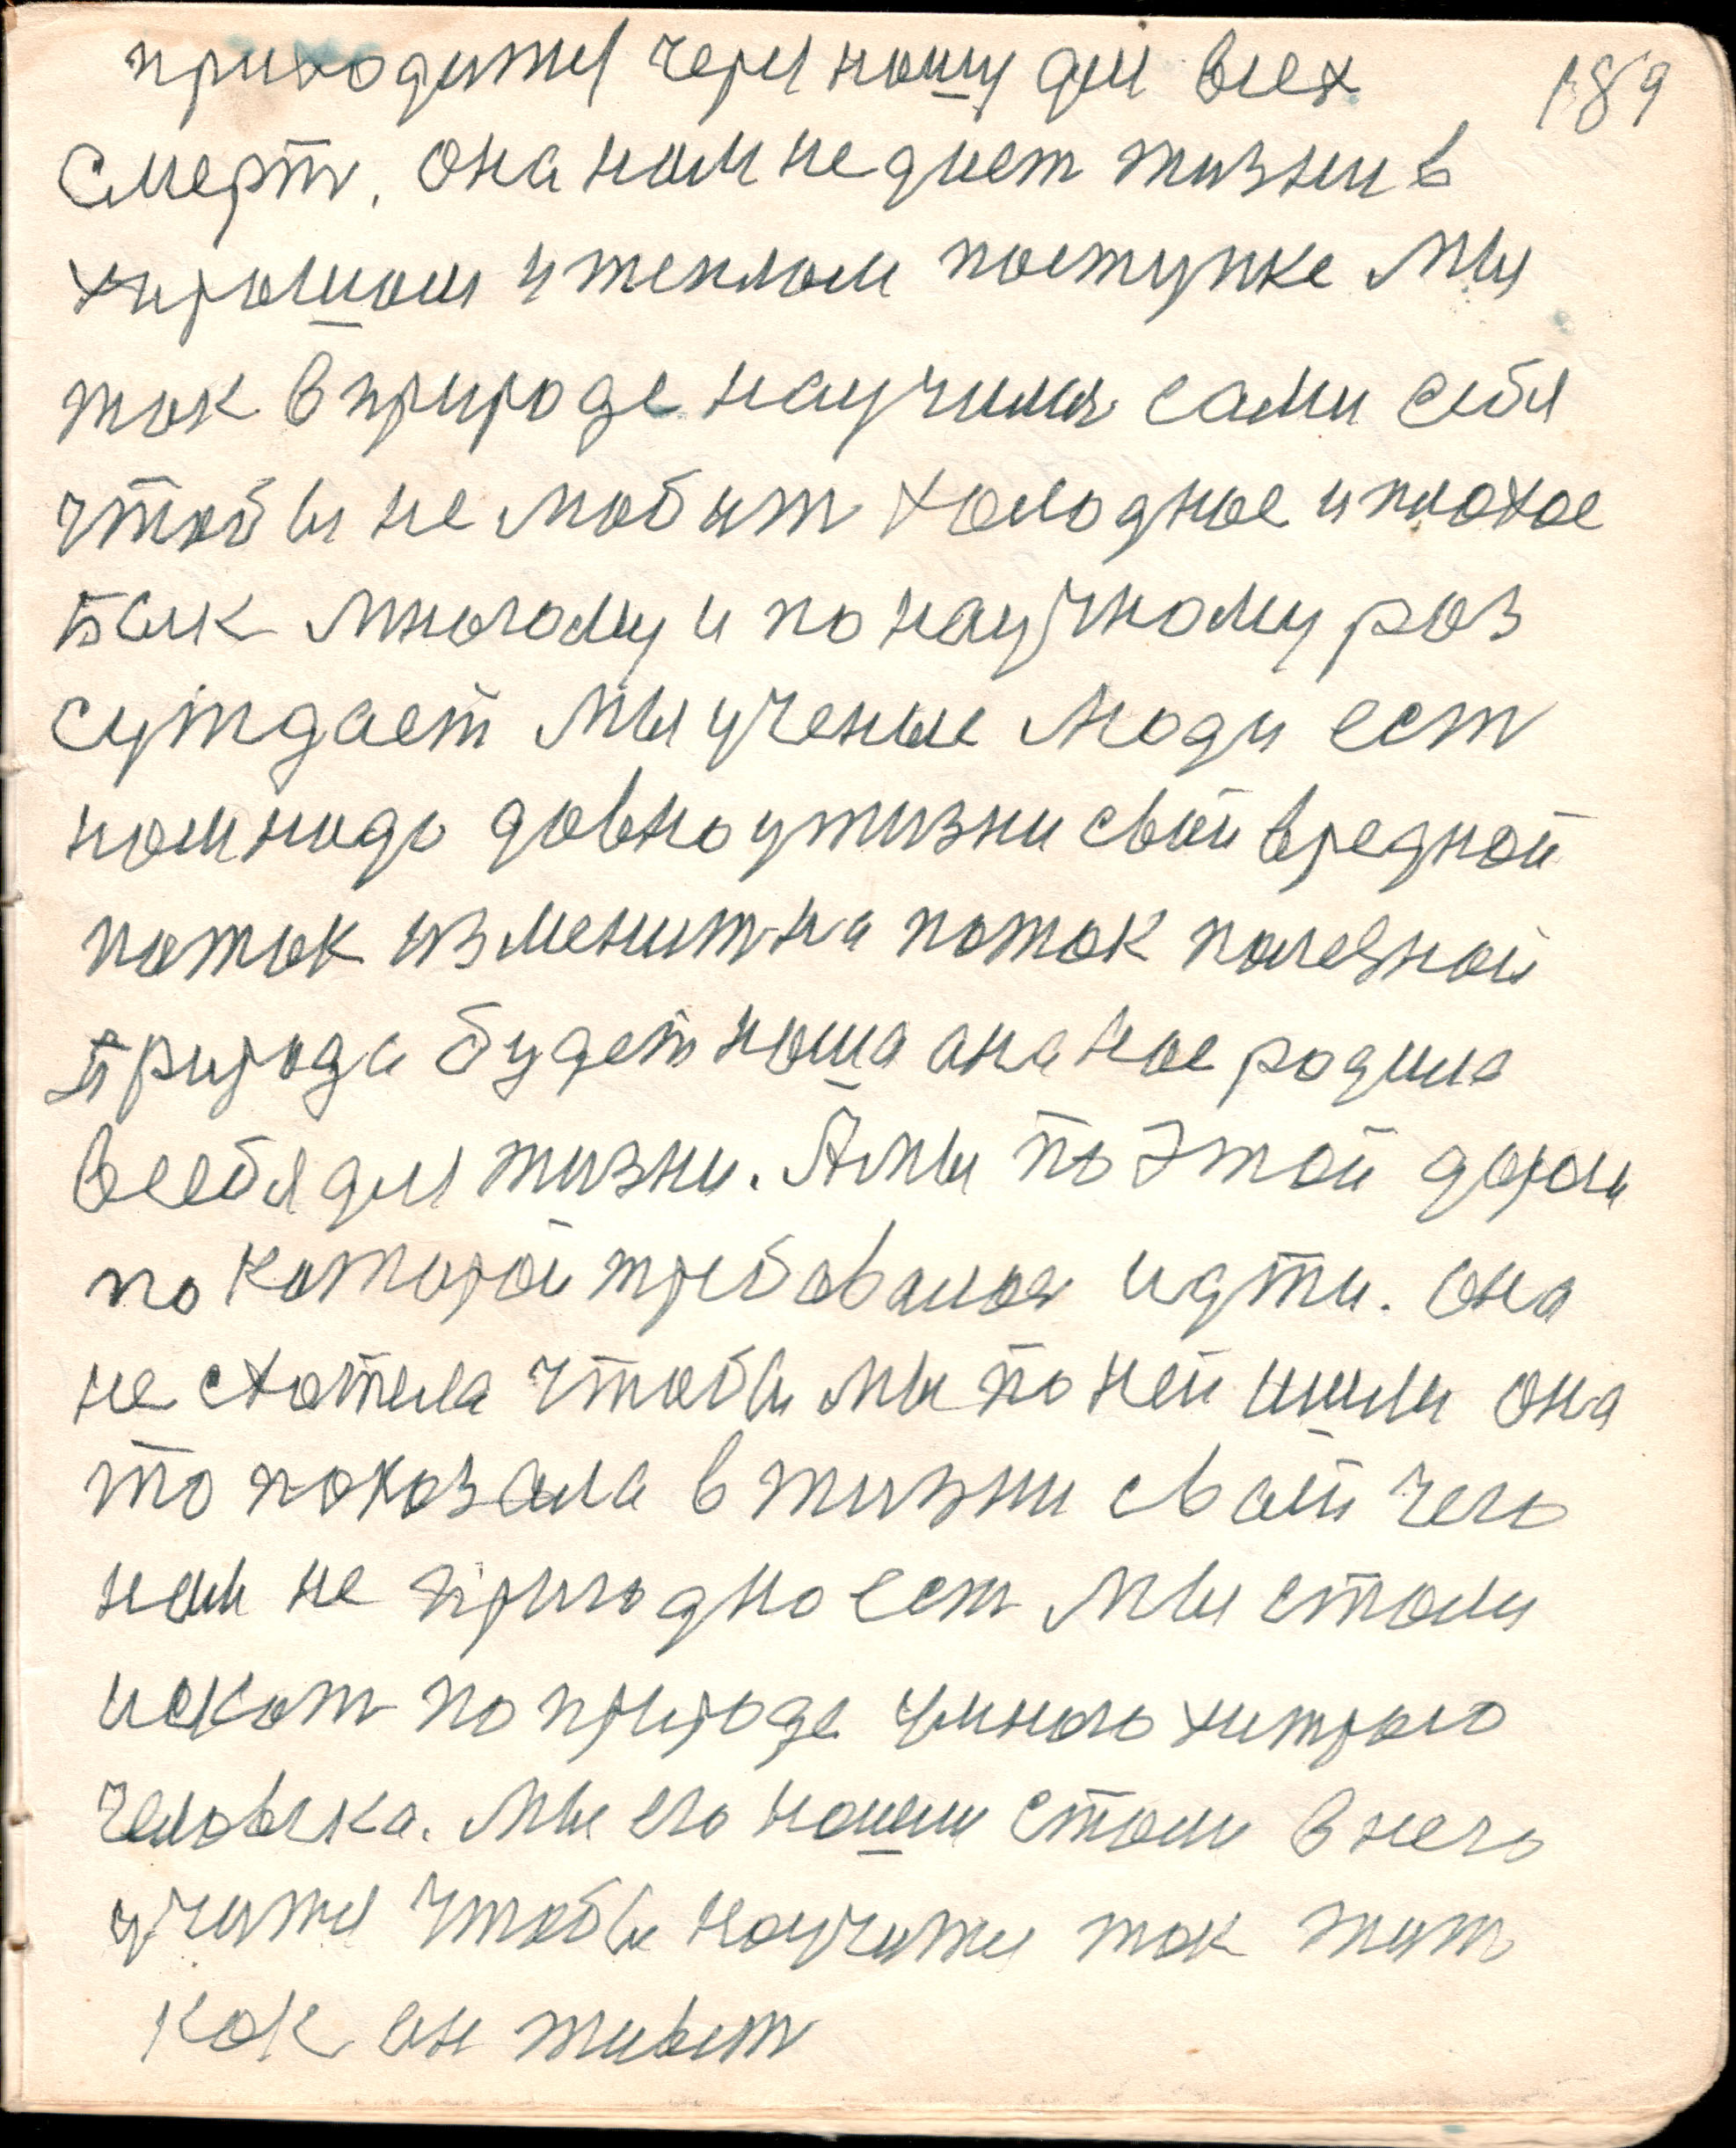 189
приходится через нашу для всех
смерть. Она нам не дает жизни в
хорошом и теплом поступке Мы
так в природе научимся сами себя
чтобы не любит холодное и плохое
Бык многому и по научному роз
суждает Мы ученые люди ест
нам надо давно у жизни свой вредной
поток изменит на поток полезной
Природа будет наша она нас родила
в себя для жизни. А мы по этой дороги
по которой требовалося идти. Она
не схотела чтобы мы по ней шли она
то показала в жизни свой чего
нам не пригодно ест Мы стали
искат по природе умного хитрого
человека. Мы его нашли стали в него
учится чтобы научится так жит
как он живет